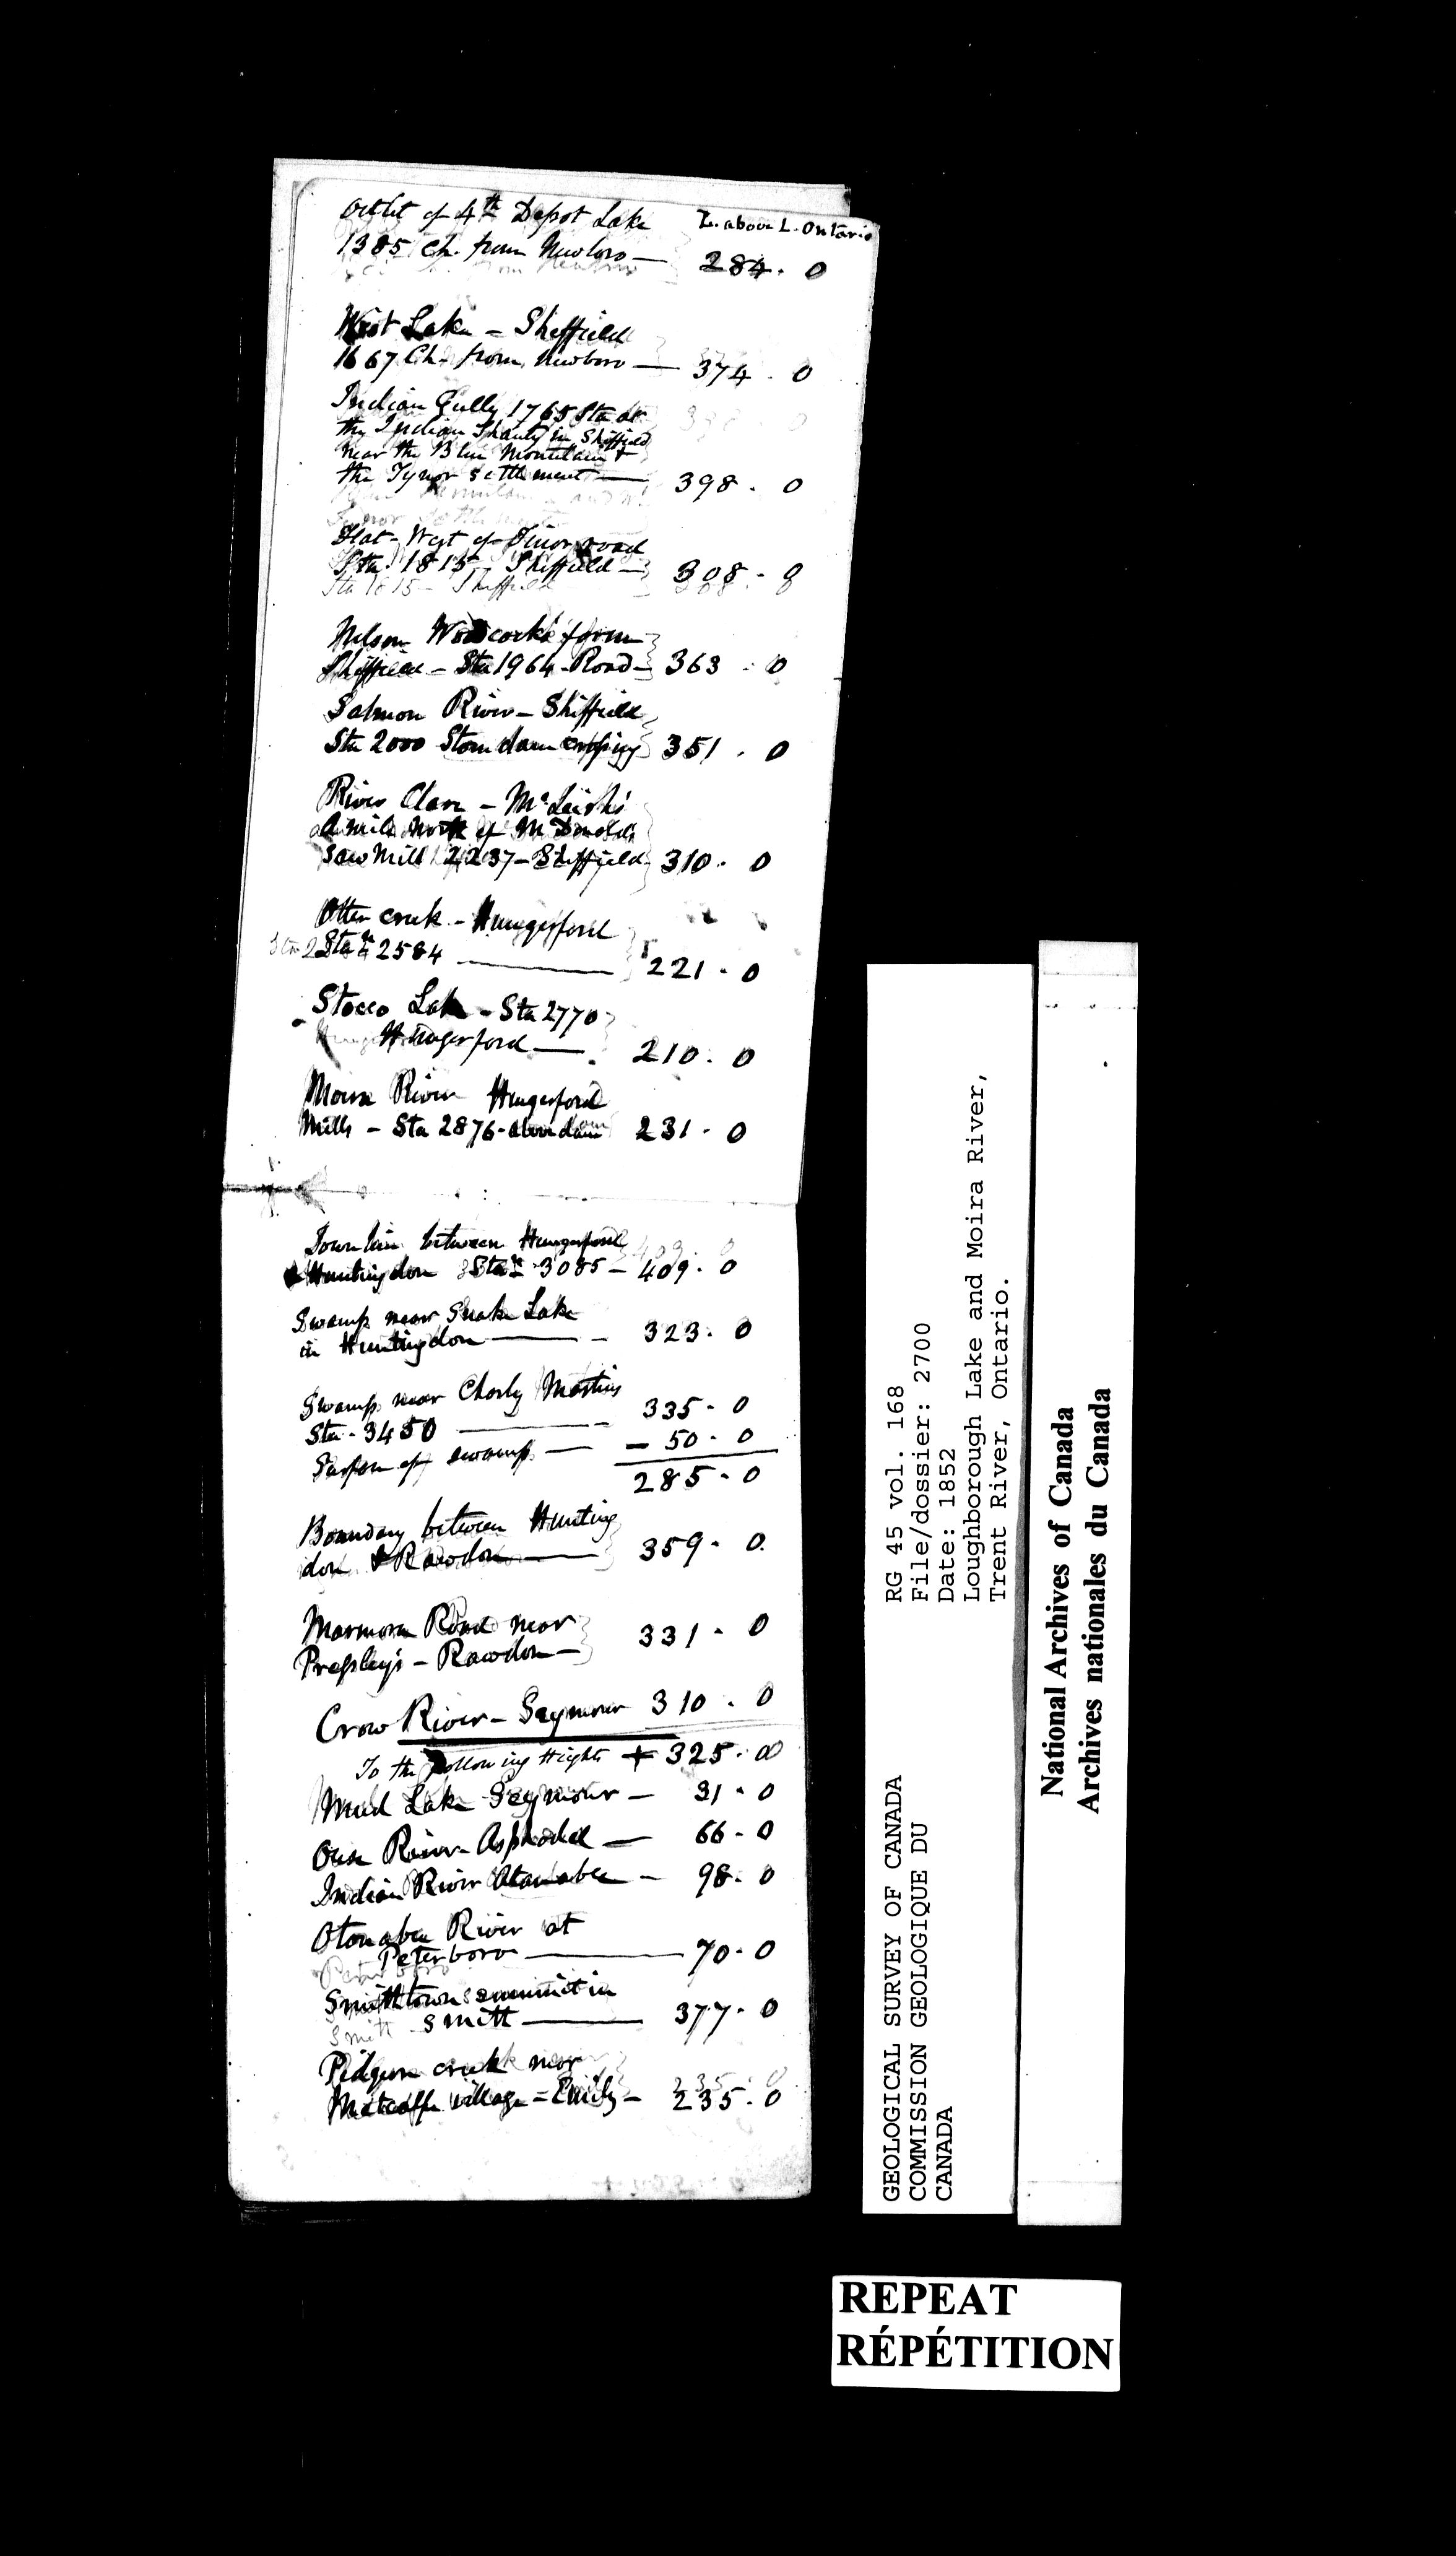 Outlet of 4th Depot Lake
L. above L. Ontario
1385 Ch. from Newboro — 284. 0
West Lake - Sheffield
1667 Ch. from Newboro — 374. 0
Indian Gully 1765 Sta at
the Indian Shanty in Sheffield
near the Blue Mountain &
the Tynor settlement — 398. 0
Flat - West of Tinor road
Sta. 1815 - Sheffield — 308. 8
Nelson Woodcocks farm
Sheffield - Sta 1964 - Road - 363. 0
Salmon River - Sheffield
Sta 2000 Stone dam crossing 351. 0
River Clare - McLeish's
A mile North of McDonolds
Saw Mill 2237 - Sheffield - 310. 0
Otter creek - Hungerford
Stan 2584 — 221. 0
Stocco Lake - Sta 2770
Hungerford — 210. 0
Moira River Hungerford
Mills - Sta 2876 - above dam 231. 0
Town line between Hungerford
& Huntingdon Stan 3085 - 409. 0
Swamp near Snake Lake
in Huntingdon — 323. 0
Swamp near Charly Martins
Sta - 3450 — 335. 0
Surface of swamp — - 50. 0
285. 0
Boundary between Hunting
don & Rawdon — 359. 0
Marmora Road near
Pressleys - Rawdon — 331. 0
Crow River - Seymour 310. 0
To the following Heights + 325. 00
Mud Lake Seymour — 31. 0
Ouse River - Asphodel — 66. 0
Indian River Otanabee — 98. 0
Otonabee River at
Peterboro — 70. 0
Smithtown summit in
Smith — 377. 0
Pidgeon creek near
Metcalfe village = Emily - 235. 0
RG 45 vol. 168
File/dossier: 2700
Date: 1852
Loughborough Lake and Moira River,
Trent River, Ontario.
GEOLOGICAL SURVEY OF CANADA
COMMISSION GEOLOGIQUE DU
CANADA
National Archives of Canada
Archives nationales du Canada
REPEAT
RÉPÉTITION